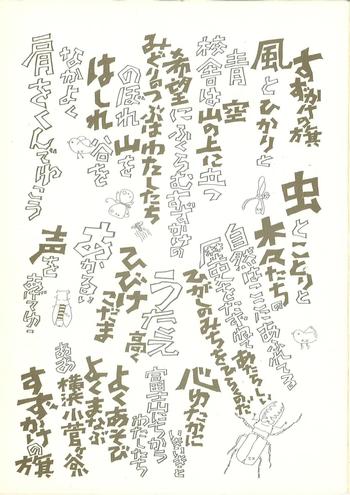 すずかけの旗
風とひかりと
青空
校舎は山の上に立つ
希望にふくらむすずかけの
みどりのつぶはわたしたち
のぼれ山を
はしれ谷を
なかよく
肩をくんでゆこう
虫とことりと
木々たちの
自然はここにあふれてる
歴史をたずね あたらしい
ひがしのみちをひらくのだ
うたえ
高く
ひびけこだま
あかるい
声をあげてゆこう
心ゆたかに
いきいきと
富士山にちかう
わたしたち
よくあそび
よくまなぶ
ああ
横浜小菅ヶ谷
すずかけの旗